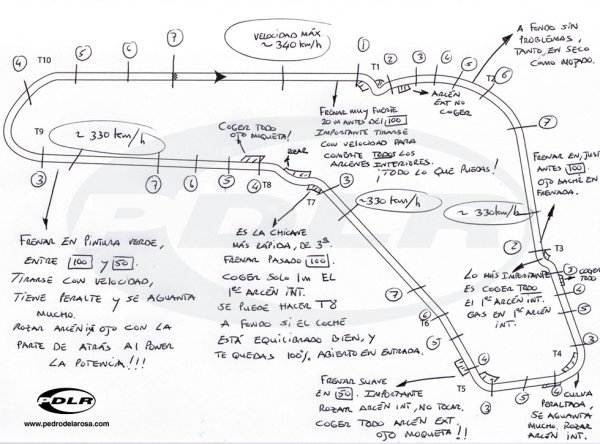 VELOCIDAD MÁX.
~ 340 km/h
A FONDO SIN
PROBLEMAS,
TANTO, EN SECO
COMO MOJADO.
T10
7
6
5
4
1
T1
2
3
4
5
T2
6
ARCÉN
EXT NO
COGER
FRENAR MUY FUERTE
20 m ANTES DEL 100
IMPORTANTE TIRARSE
CON VELOCIDAD PARA
COMBATE TODOS LOS
ARCENES INTERIORES.
¡TODO LO QUE PUEDAS!
COGER TODO
OJO MOQUETA!
ROZAR
T9
~ 330 km/h
3
7
6
5
4
T8
T7
3
7
FRENAR EN, JUSTO
ANTES 100
OJO BACHE EN
FRENADA.
~ 330 km/h
~ 330 km/h
2
T3
FRENAR EN PINTURA VERDE,
ENTRE 100 Y 50.
TIRARSE CON VELOCIDAD,
TIENE PERALTE Y SE AGUANTA
MUCHO.
ROZAR ARCÉN INT, OJO CON LA
PARTE DE ATRÁS AL POWER
LA POTENCIA!!!
ES LA CHICANE
MÁS RÁPIDA, DE 3ª
FRENAR PASADO 100.
COGER SOLO 1m EL
1er ARCÉN INT.
SE PUEDE HACER T8
A FONDO SI EL COCHE
ESTÁ EQUILIBRADO BIEN, Y
TE QUEDAS 100% ABIERTO EN ENTRADA.
LO MÁS IMPORTANTE
ES COGER TODO
EL 1er ARCÉN INT.
GAS EN 1er ARCÉN
INT.
3
COGER
TODO
4
5
3
7
T6
6
5
4
T5
3
5
T4
4
FRENAR SUAVE
EN 50. IMPORTANTE
ROZAR ARCÉN INT, NO TOCAR.
COGER TODO ARCÉN EXT.
OJO MOQUETA!!
CURVA
PERALTADA,
SE AGUANTA
MUCHO. ROZAR
ARCÉN INT.
PDLR
PDLR
www.pedrodelarosa.com